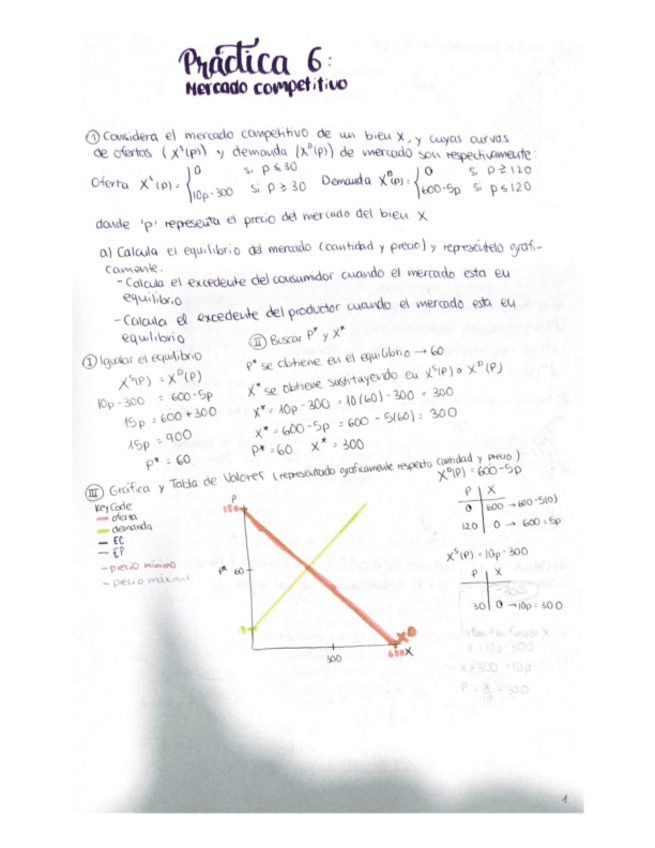 Práctica 6:
Mercado competitivo
① Considera el mercado competitivo de un bien X, y cuyas curvas
de ofertas (Xˢ(p)) y demanda (Xᴰ(p)) de mercado son respectivamente:
Oferta Xˢ(p) = { 0 si p ≤ 30 Demanda Xᴰ(p) = { 0 si p ≥ 120
10p - 300 si p ≥ 30 600 - 5p si p ≤ 120
donde 'p' representa el precio del mercado del bien X
a) Calcula el equilibrio del mercado (cantidad y precio) y represéntelo gráfi-
camente.
- Calcula el excedente del consumidor cuando el mercado esta en
equilibrio
- Calcula el excedente del productor cuando el mercado esta en
equilibrio
Ⓘ Igualar el equilibrio
Xˢ(p) = Xᴰ(p)
10p - 300 = 600 - 5p
15p = 600 + 300
15p = 900
p* = 60
Ⅱ Buscar P* y X*
P* se obtiene en el equilibrio → 60
X* se obtiene sustituyendo en Xˢ(p) o Xᴰ(p)
X* = 10p - 300 = 10(60) - 300 = 300
X* = 600 - 5p = 600 - 5(60) = 300
P* = 60 X* = 300
Ⅲ Gráfica y Tabla de Valores (representado gráficamente respecto cantidad y precio)
Key Code
- oferta
- demanda
- EC
- EP
- precio mínimo
- pecio máximo
P
120
P* 60
300
600
X
Xᴰ
Xᴰ(p) = 600 - 5p
P | X
0 | 600 → 600 - 5(0)
120 | 0 → 600 = 5p
Xˢ(p) = 10p - 300
P | X
-300
30 | 0 → 10p = 300
X = 10p - 300
X + 300 = 10p
P = X/10 + 300
1